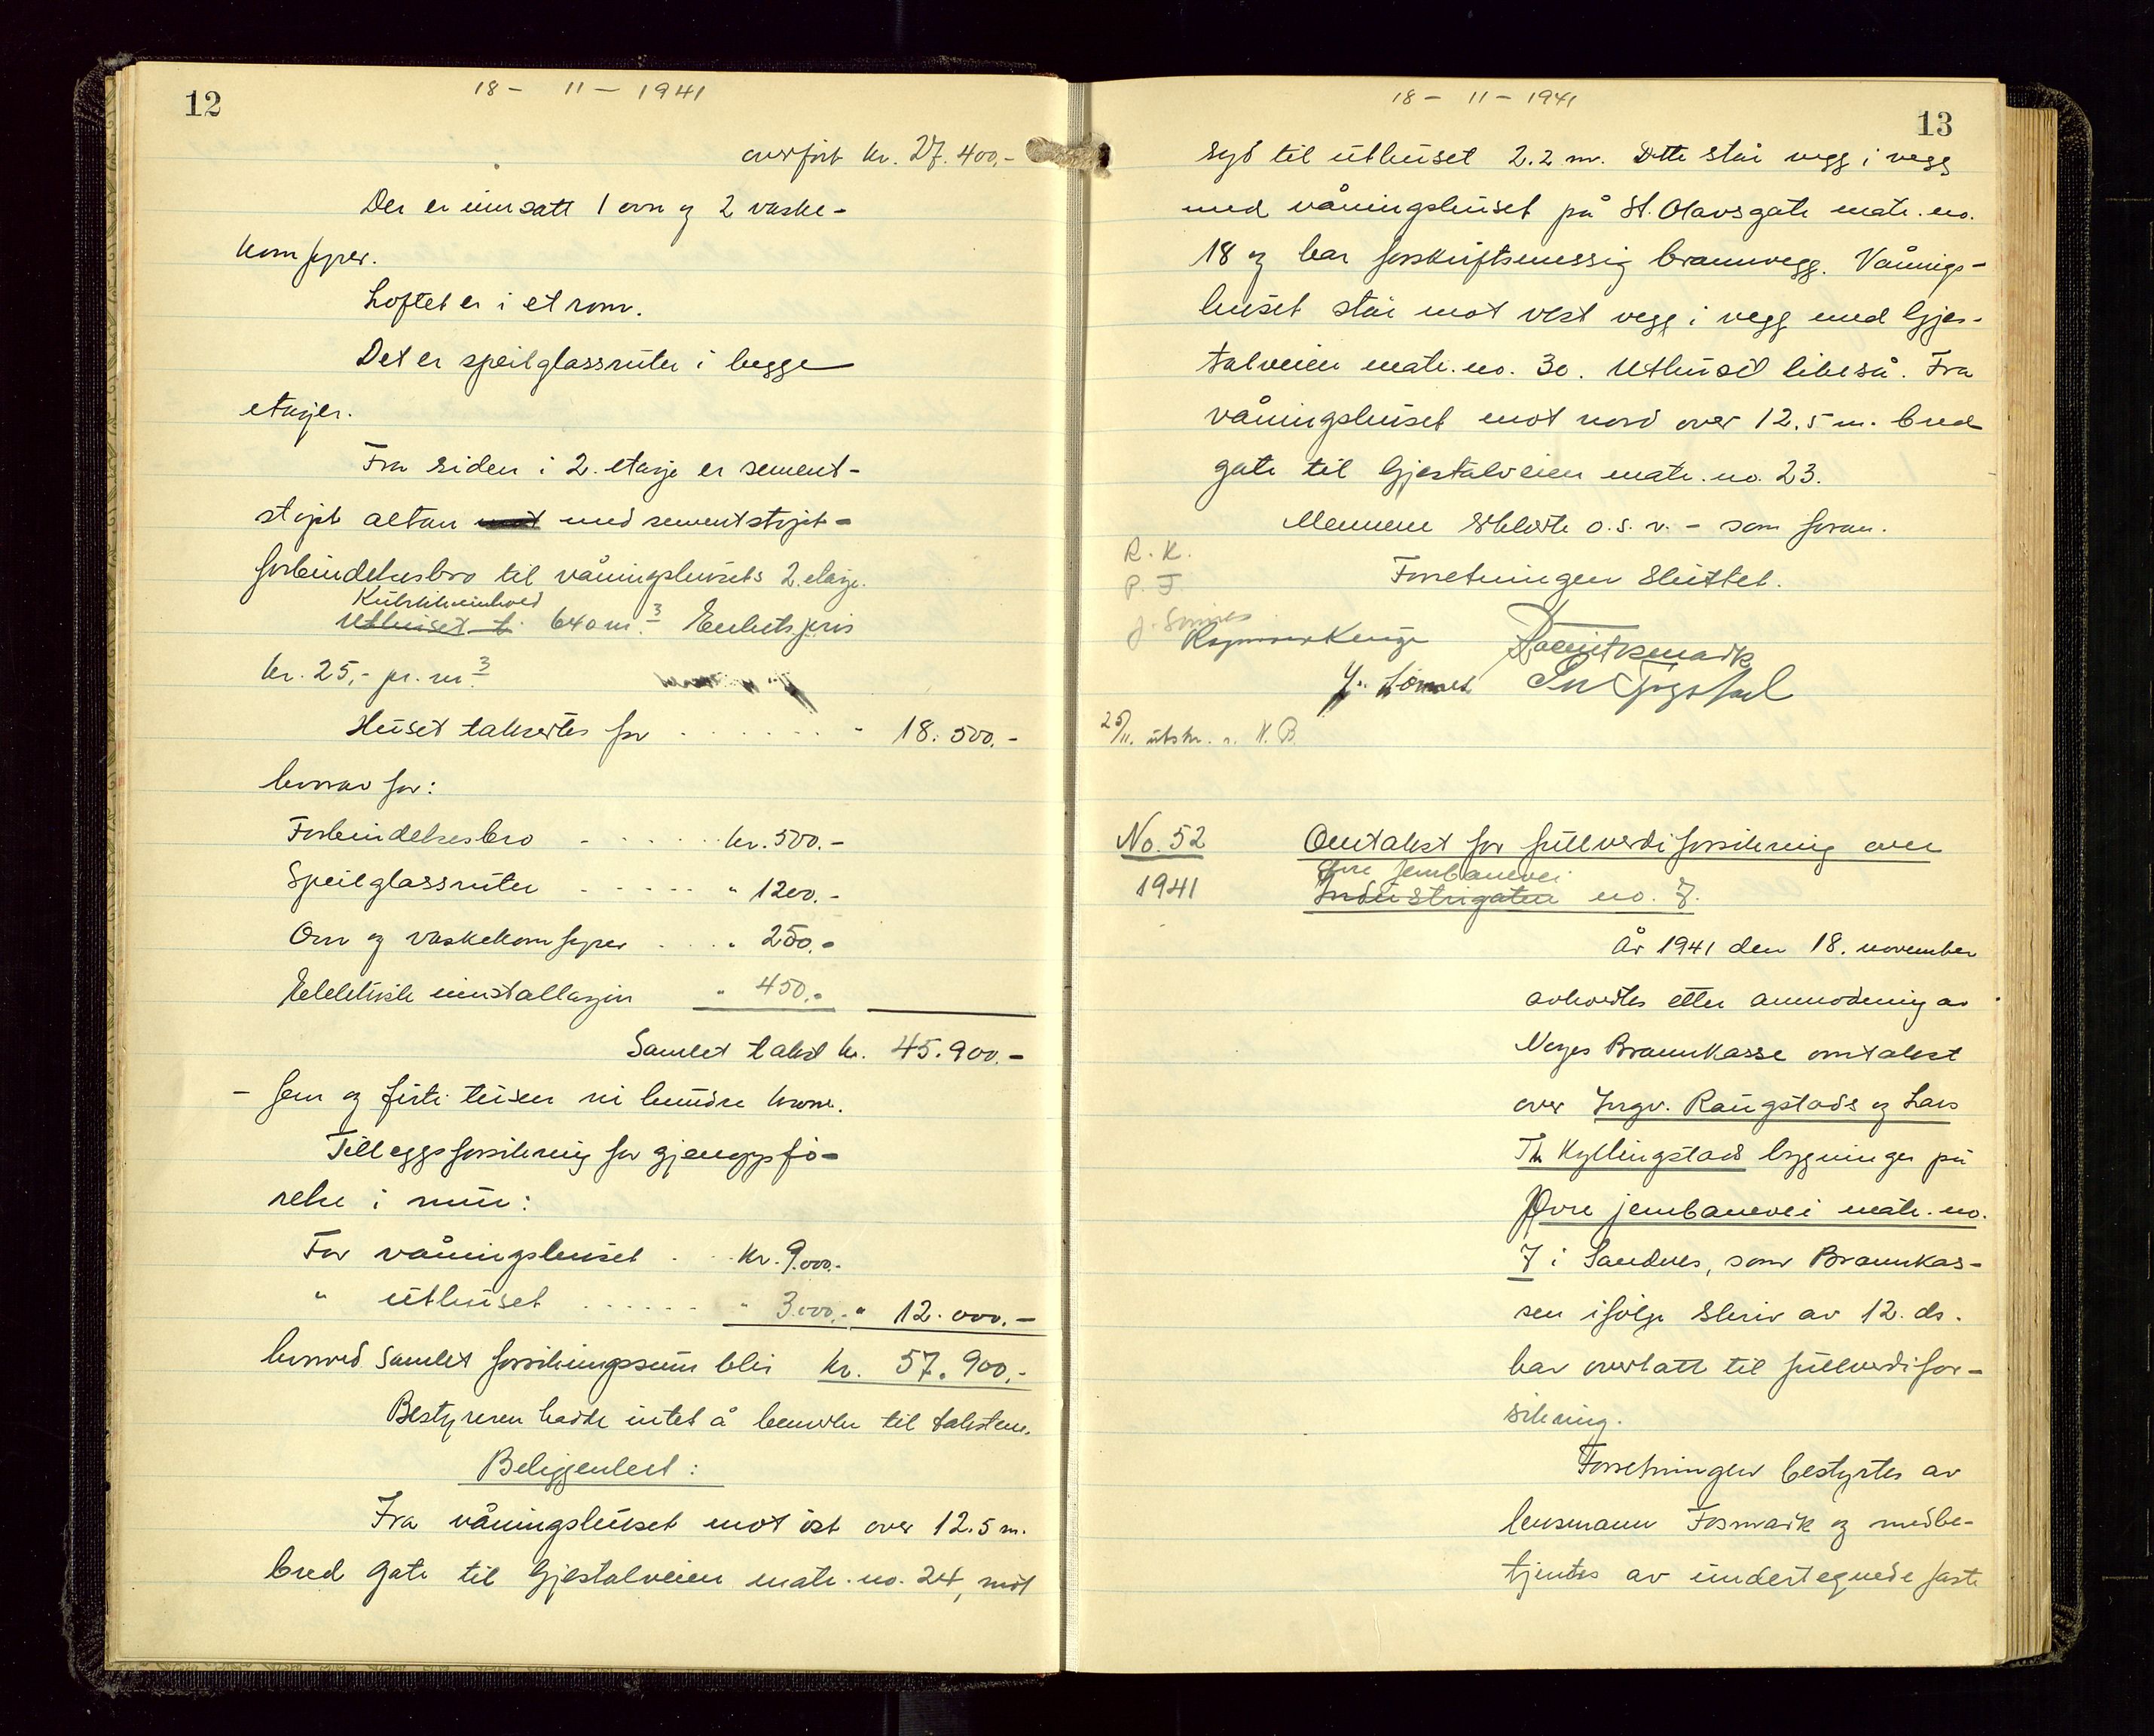 12
18 - 11 - 1941
overført kr. 27.400.-
Der er innsatt 1 ovn og 2 vaske-
komfyrer.
Loftet er i et rom.
Det er speilglassruter i begge
etasjer.
Fra siden i 2. etasje er sement-
støpt altan mot med sementstøpt-
forbindelsesbro til våningshusets 2. etasje.
Kubikkinnhold
Uthuset t. 640 m³. Enhetspris
kr. 25,- pr. m³.
Huset takseres for . . . . . . " 18.500.-
hvorav for:
Forbindelsesbro . . . . . kr. 500.-
Speilglassruter . . . . . " 1200.-
Ovn og vaskekomfyrer . . . . " 250.-
Elektrisk innstallasjon " 450.-
Samlet takst kr. 45.900.-
- fem og førti tusen ni hundre kroner.
Tilleggsforsikring for gjenoppfø-
relse i mur:
For våningshuset . . kr. 9.000.-
" uthuset . . . . . . " 3.000.- " 12.000.-
hvorved samlet forsikringssum blir kr. 57.900.-
Bestyreren hadde intet å bemerke til taksten.
Beliggenhet:
Fra våningshuset mot øst over 12.5 m.
bred gate til Gjestalveien matr. no. 24, mot
13
18 - 11 - 1941
syd til uthuset 2.2 m. Dette står vegg i vegg
med våningshuset på St. Olavsgate matr. no.
18 og har forskriftsmessig brannvegg. Vånings-
huset står mot vest vegg i vegg med Gjes-
talveien matr. no. 30. Uthuset likeså. Fra
våningshuset mot nord over 12.5 m. bred
gate til Gjestalveien matr. no. 23.
Mennene erklærte o.s.v. - som foran.
R. K.
P. F.
Forretningen sluttet.
J. Sømes
25/11. utskr. s. N. B.
No. 52
1941
Omtakst for fullverdiforsikring over
Øvre Jernbanevei
Industrigaten no. 7.
År 1941 den 18. november
avholdtes etter anmodning av
Norges Brannkasse omtakst
over Ingv. Raugstads og Lars
Th Kyllingstads bygninger på
Øvre jernbanevei matr. no.
7 i Sandnes, som Brannkas-
sen ifølge skriv av 12. ds.
har overtatt til fullverdifor-
sikring.
Forretningen bestyrtes av
lensmann Fosmark og medbe-
tjentes av undertegnede faste